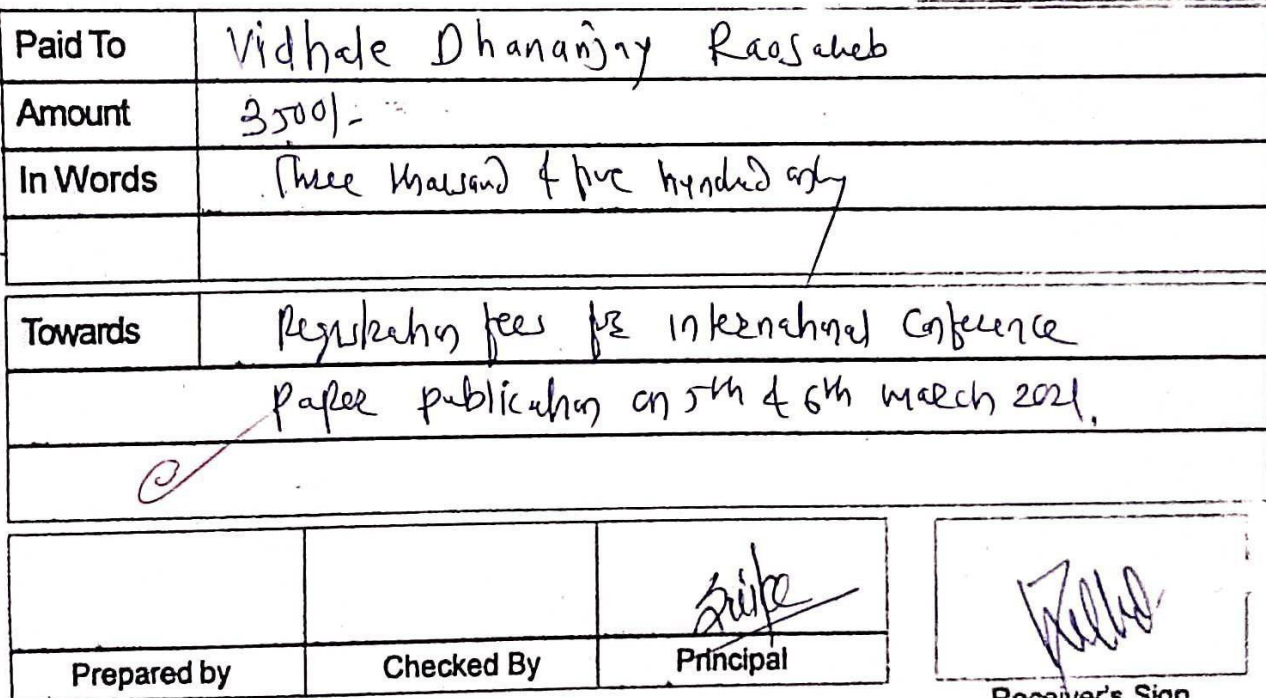 Paid To Vidhale Dhananjay Raosaheb
Amount 3500/-
In Words Three thousand & five hundred only
Towards Registration fees for international Conference
paper publication on 5th & 6th march 2021.
Prepared by Checked By Principal
Receiver's Sign